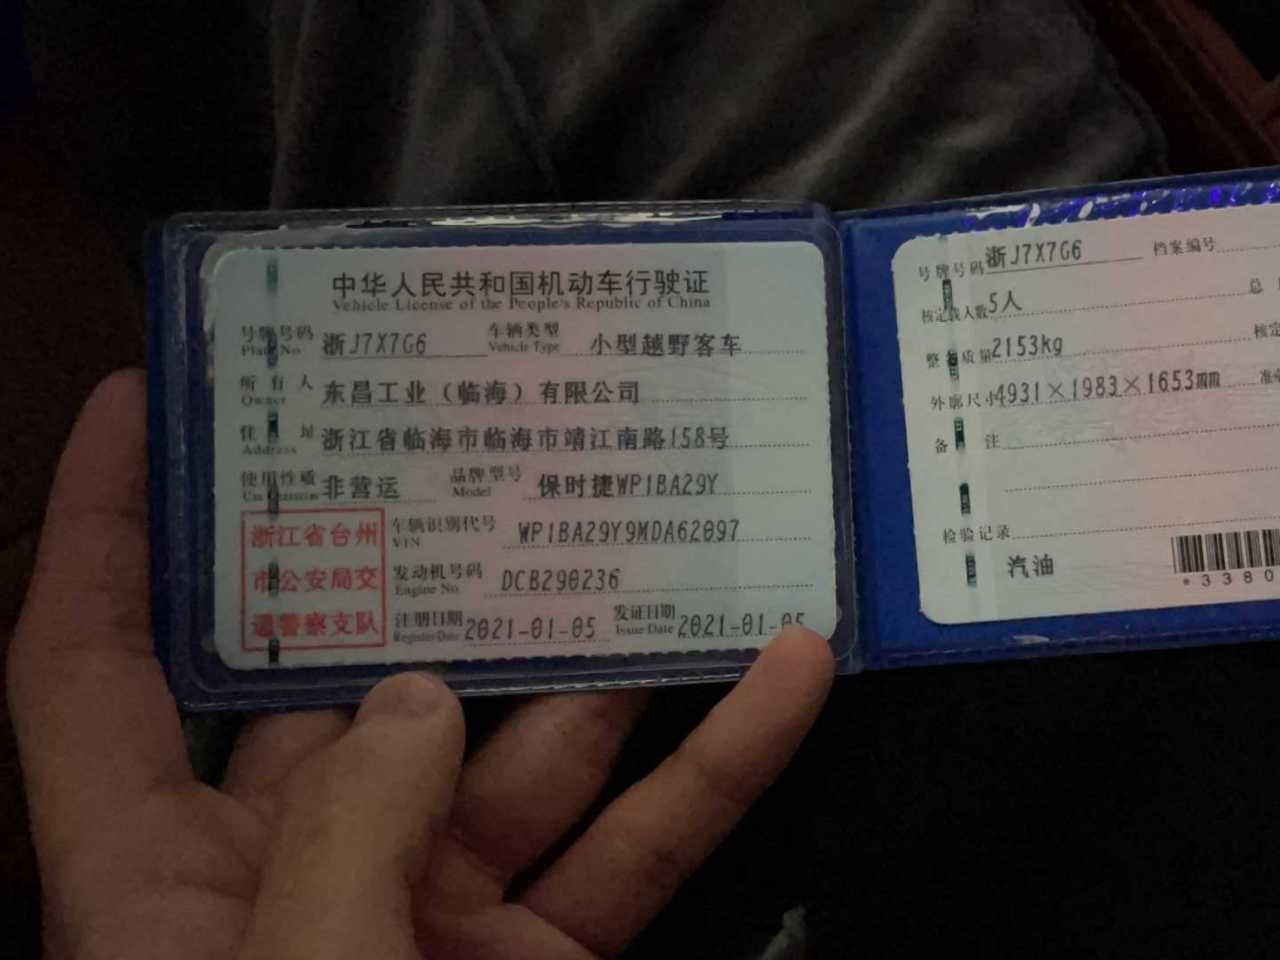 中华人民共和国机动车行驶证
Vehicle License of the People's Republic of China
号牌号码 浙J7X7G6 车辆类型 小型越野客车
Plate No. Vehicle Type
所有人 东昌工业（临海）有限公司
Owner
住址 浙江省临海市临海市靖江南路158号
Address
使用性质 非营运 品牌型号 保时捷WP1BA29Y
Model
浙江省台州
市公安局交
通警察支队
车辆识别代号 WP1BA29Y9MDA62097
VIN
发动机号码 DCB290236
Engine No.
注册日期 2021-01-05 发证日期 2021-01-05
Register Date Issue Date
号牌号码 浙J7X7G6 档案编号
核定载人数 5人 总
整备质量 2153kg 核定
外廓尺寸 4931×1983×1653mm 准牵
备注
检验记录
汽油
*3380